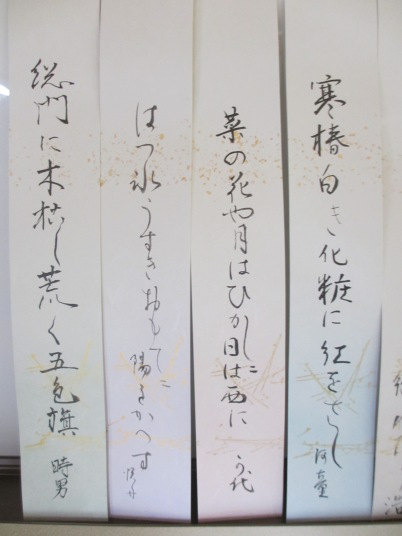 寒椿白き化粧に紅をさし 河童
菜の花や月はひがしに日は西に
はつ氷うすきおもてに陽をかへす
総門に木枯し荒く五色旗 時男